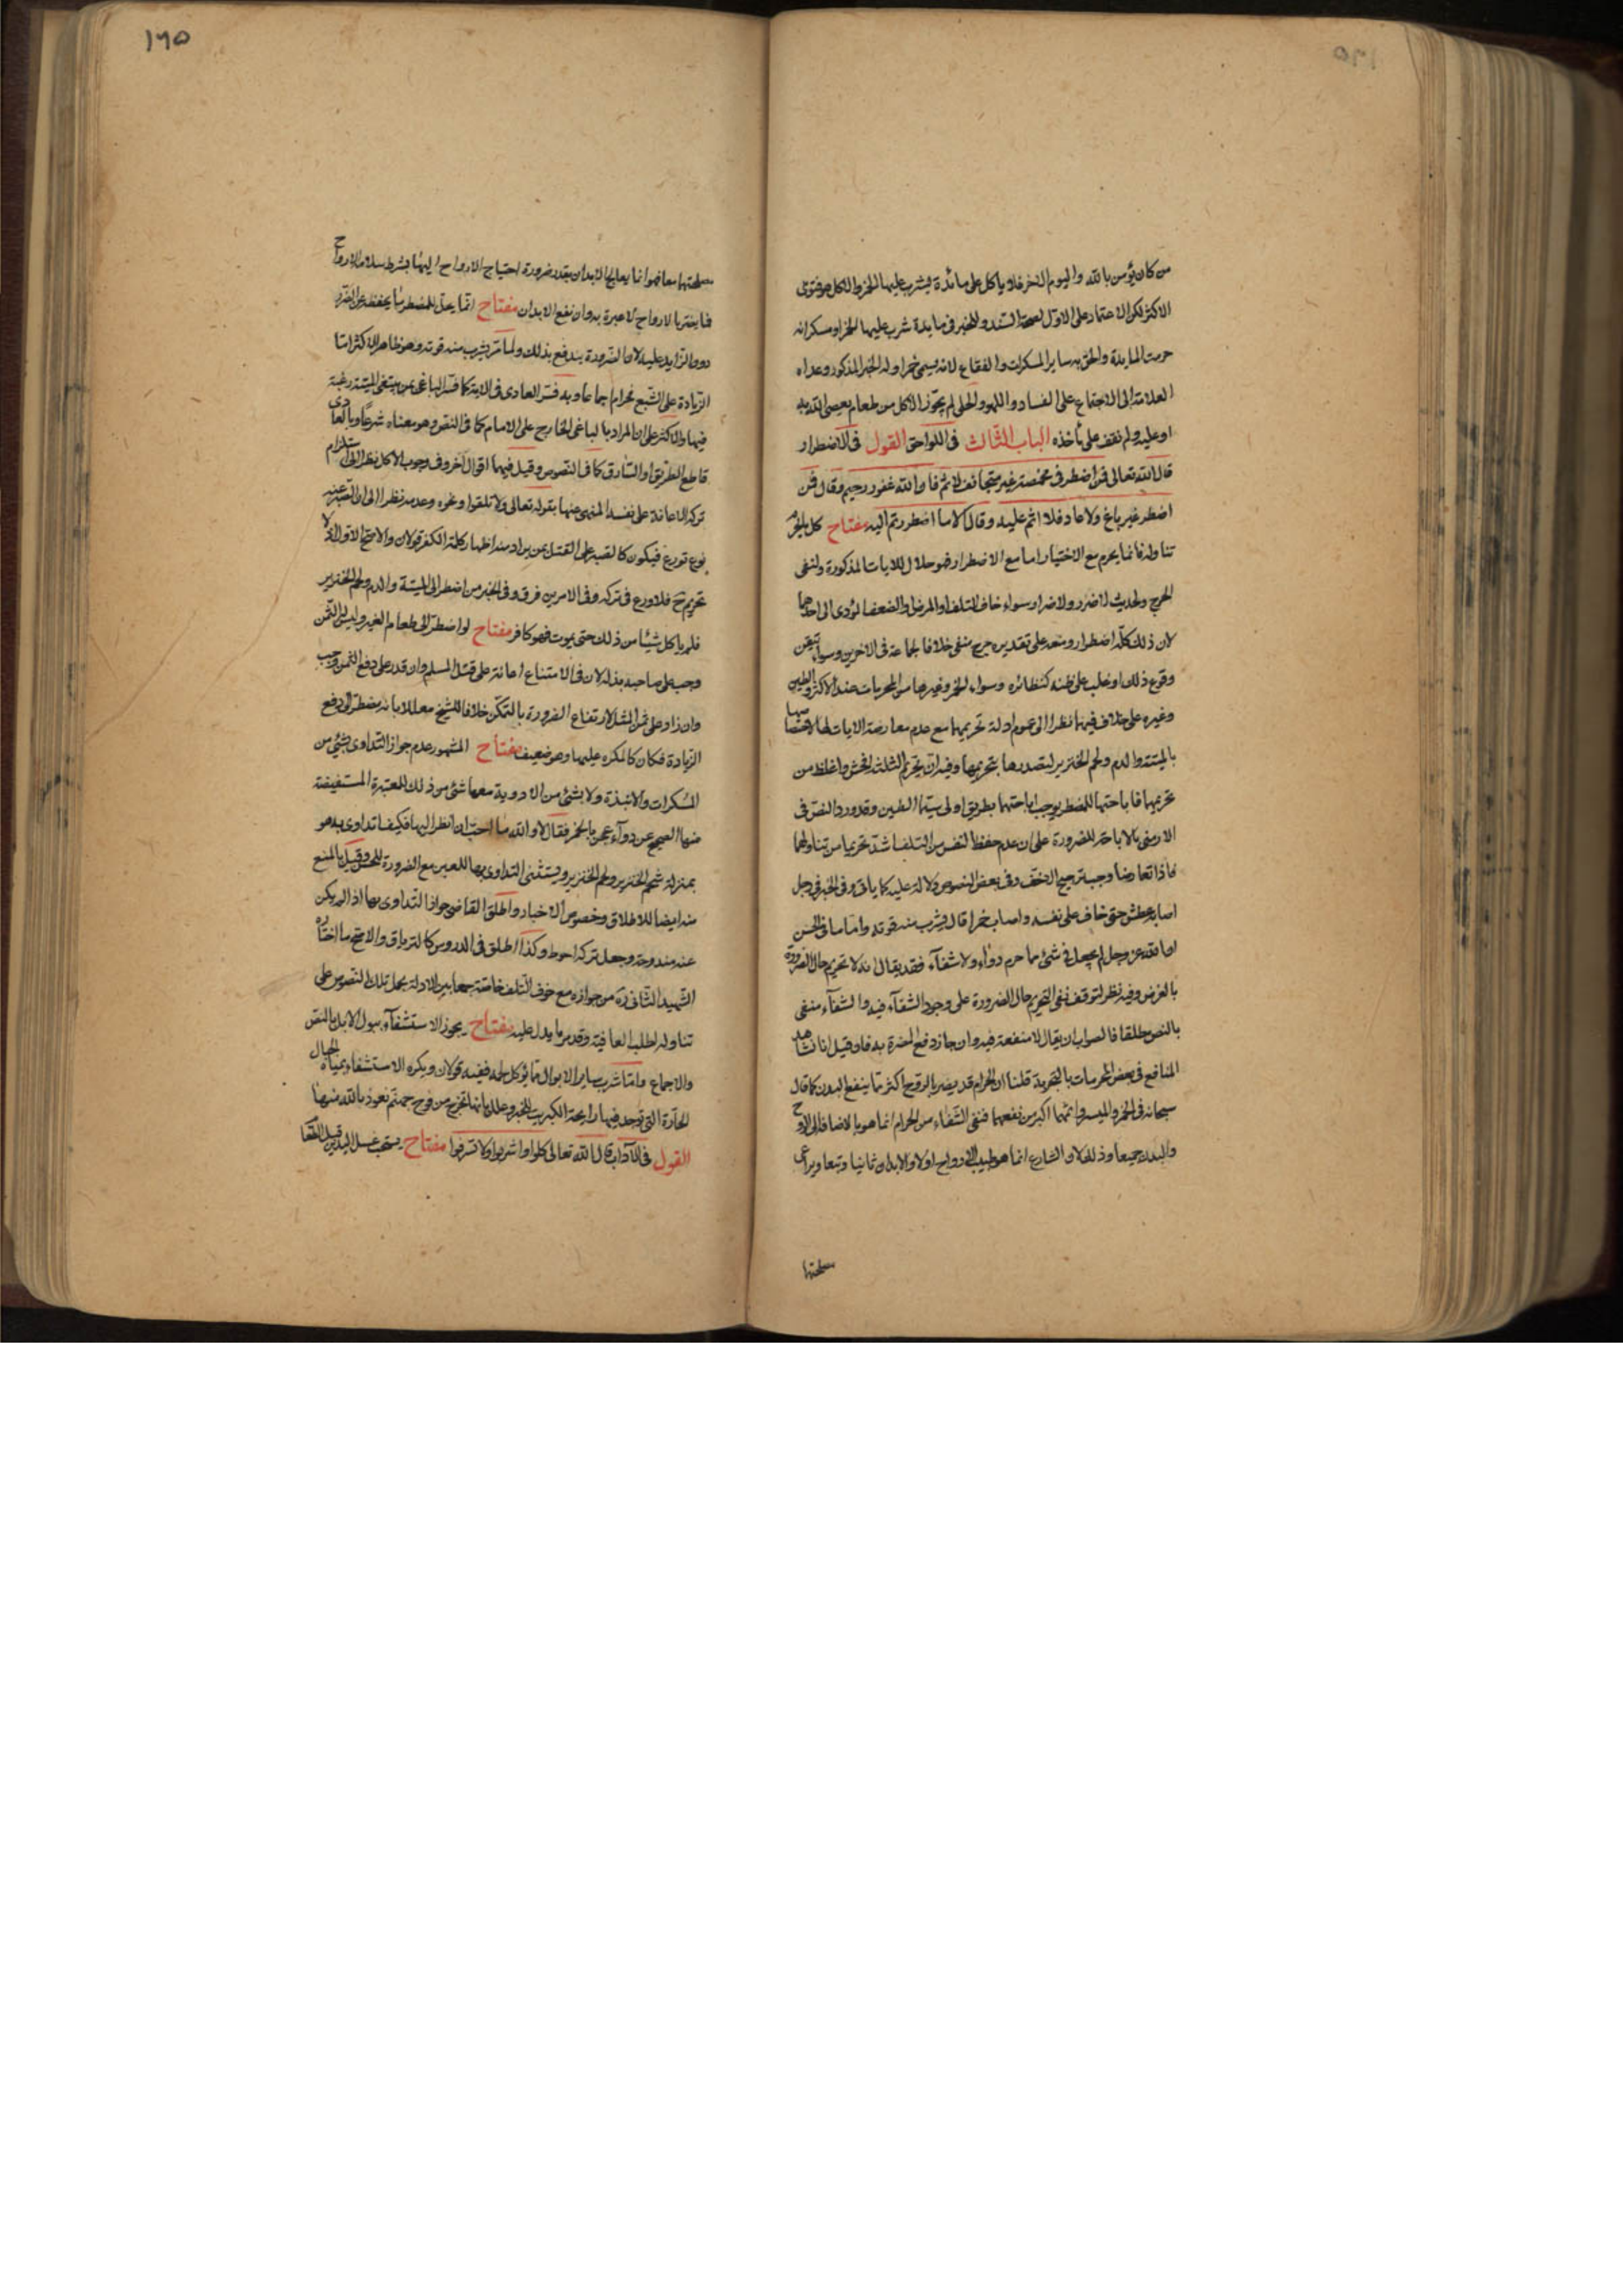 من كان يؤمن بالله واليوم الاخر فلا يأكل على مائدة يشرب عليها الخمر والكل هو فتوى
الاكثر لكن الاعتماد على الاول لصحة السند وللخبر في مايدة شرب عليها الخمر او مسكر انه
حرمت المايدة والحق به ساير المسكرات والفقاع لانه يسمى خمرا وله الخبر المذكور وعداه
العلامة الى الاجتماع على الفساد واللهو والحلى لم يجوز الاكل من طعام يعصى الله به
او عليه ولم نقف على مأخذه الباب الثالث في اللواحق القول في الاضطرار
قال الله تعالى فمن اضطر في مخمصة غير متجانف لاثم فان الله غفور رحيم وقال فمن
اضطر غير باغ ولا عاد فلا اثم عليه وقال الا ما اضطررتم اليه مفتاح كل ما يحرم
تناوله فانما يحرم مع الاختيار اما مع الاضطرار فهو حلال للايات المذكورة ولنفى
الحرج ولحديث لا ضرر ولا ضرار سواء خاف التلف او المرض او الضعف المؤدى الى احدهما
لان ذلك كله اضطرار ومنعه على تقديره حرج منفى خلافا لجماعة في الاخرين وسواء تيقن
وقوع ذلك او غلب على ظنه كنظائره وسواء الخمر وغيرها من المحرمات عند الاكثر والطين
وغيره على خلاف فيهما نظرا الى عموم ادلة تحريمهما مع عدم معارضة الايات لها لاختصاصها
بالميتة والدم ولحم الخنزير لتصدرها بتحريمها وفيه ان تحريم الثلث افحش واغلظ من
تحريمها فاباحتها للمضطر يوجب اباحتهما بطريق اولى سيما الطين وقد ورد النص في
الارمنى بالاباحة للضرورة على ان عدم حفظ النفس من التلف اشد تحريما من تناولهما
فاذا تعارضا وجب ترجيح الاخف وفي بعض النصوص دلالة عليه كما ياتى وفى الخبر في رجل
اصابه عطش حتى خاف على نفسه واصاب خمرا قال يشرب منه قوته واما ما في الحسن
ان الله عز وجل لم يجعل في شئ مما حرم دواء ولا شفآء فقد يقال انه لا تحريم حال الضرورة
بالفرض وفيه نظر لتوقف نفى التحريم حال الضرورة على وجود الشفآء فيه والشفآء منفى
بالنص مطلقا فالصواب ان يقال لا منفعة فيه وان جاز دفع المضرة به فان قيل انا نشاهد
المنافع في بعض المحرمات بالتجربة قلنا ان الحرام قد يضر بالروح اكثر مما ينفع البدن كما قال
سبحانه في الخمر والميسر واثمهما اكبر من نفعهما فنفى الشفاء من الحرام انما هو بالاضافة الى الروح
والبدن جميعا وذلك لان الشارع انما هو طبيب الارواح اولا والابدان ثانيا وتبعا ويراعى
مصلحتها
١٦٥
مصلحتها معا فهو انما يعالج الابدان بقدر ضرورة احتياج الارواح اليها بشرط سلامة الارواح
فما يضر بالارواح لا عبرة به وان نفع الابدان مفتاح انما يحل للمضطر ما يحفظه عن الضرر
دون الزايد عليه لان الضرورة يندفع بذلك ولما مر يشرب منه قوته وهو ظاهر الاكثر اما
الزيادة على الشبع فحرام اجماعا وبه فسر العادى في الاية كما فسر الباغى بمن يبتغى الميتة رغبة
فيها والاكثر على ان المراد بالباغى الخارج على الامام كما في النص وهو معناه شرعا وبالعادى
قاطع الطريق او السارق كما في النصوص وقيل فيهما اقوال اخر وفي وجوب الاكل نظرا الى استلزام
تركه الاعانة على نفسه المنهى عنها بقوله تعالى ولا تلقوا ونحوه وعدمه نظرا الى ان الصبر عنه
نوع تورع فيكون كالصبر على القتل ممن يراد منه اظهار كلمة الكفر قولان والاصح الاول اذ لا
تحريم ح فلا ورع في تركه وفى الامرين فرق وفى الخبر من اضطر الى الميتة والدم ولحم الخنزير
فلم يأكل شيئا من ذلك حتى يموت فهو كافر مفتاح لو اضطر الى طعام الغير وليس له الثمن
وجب على صاحبه بذله لان في الامتناع اعانة على قتل المسلم وان قدر على دفع الثمن وجب
وان زاد على ثمن المثل لارتفاع الضرورة بالتمكن خلافا للشيخ معللا بانه مضطر الى دفع
الزيادة فكان كالمكره عليها وهو ضعيف مفتاح المشهور عدم جواز التداوى بشئ من
المسكرات والانبذة ولا بشئ من الادوية معها شئ من ذلك للمعتبرة المستفيضة
منها الصحيح عن دوآء عجن بالخمر فقال لا والله ما احب ان انظر اليها فكيف اتداوى به هو
بمنزلة شحم الخنزير ولحم الخنزير ويستثنى التداوى بها للعين مع الضرورة للنص وقيل بالمنع
منه ايضا للاطلاق وخصوص الاخبار واطلق القاضى جواز التداوى بها اذا لم يكن
عنه مندوحة وجعل تركه احوط وكذا اطلق في الدروس كالترياق والاصح ما اختاره
الشهيد الثانى ره من جوازه مع خوف التلف خاصة جمعا بين الادلة بحمل تلك النصوص على
تناوله لطلب العافية وقد مر ما يدل عليه مفتاح يجوز الاستشفآء ببول الابل بالنص
والاجماع واما شرب ساير الابوال مما يؤكل لحمه ففيه قولان ويكره الاستشفاء بمياه الجبال
الحارة التى توجد فيها رايحة الكبريت للخبر وعلل بانها تخرج من فوح جهنم نعوذ بالله منها
القول في الآداب قال الله تعالى كلوا واشربوا ولا تسرفوا مفتاح يستحب غسل اليدين قبل الطعام